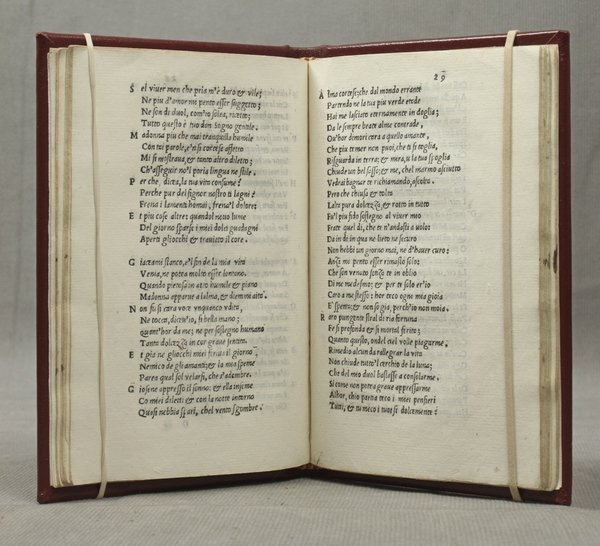 S el viuer men che pria m'è duro & vile;
Ne piu d'amor me pento esser suggetto;
Ne son di duol, com'io solea, ricetto;
Tutto questo è tuo don sogno gentile.
M adonna piu che mai tranquilla humile
Con tai parole, e'n si cortese affetto
Mi si mostraua, & tanto altro diletto;
Ch'asseguir no'l poria lingua ne stile.
P er che, dicea, la tua vita consume?
Perche pur del signor nostro ti lagni?
Frena i lamenti homai, frena'l dolore:
E t piu cose altre; quando'l nouo lume
Del giorno sparse i miei dolci guadagni
Aperti gliocchi & trauiato il core.
G iaceami stanco, e'l fin de la mia vita
Venia, ne potea molto esser lontano.
Quando pietosa in atto humile & piano
Madonna apparue a l'alma, & diemmi aita.
N on fu si cara voce vnquanco vdita,
Ne tocca, diceu'io, si bella mano;
quant'hor da me; ne per sostegno humano
Tanta dolcezza in cor graue sentita.
E t gia ne gliocchi miei feriua il giorno
Nemico de gliamanti; & la mia speme
Parea qual sol velarsi, che s'adombre.
G iosene appresso il sonno: & ella insieme
Co miei diletti & con la notte intorno
Quasi nebbia spari, che'l vento sgombre.
29
A lma cortese; che dal mondo errante
Partendo ne la tua piu verde etade
Hai me lasciato eternamente in doglia;
Da le sempre beate alme contrade,
Ou'hor dimori cara a quello amante,
Che piu temer non puoi, che ti si toglia,
Risguarda in terra; & mira, u la tua spoglia
Chiude vn bel sasso; & me, che'l marmo asciutto
Vedrai bagnar te richiamando, ascolta.
Pero che chiusa & tolta
L'alta pura dolcezza, & rotto in tutto
Fu'l piu fido sostegno al viuer mio
Frate quel di, che te n'andasti a uolo:
Da indi in qua ne lieto ne securo
Non hebbi vn giorno mai, ne d'hauer curo;
Anzi mi pento esser rimaso solo;
Che son venuto senza te in oblio
Di me medesmo; & per te sol er'io
Caro a me stesso: hor teco ogni mia gioia
E' spenta; & non so gia, perch'io non moia.
R aro pungente stral di ria fortuna
Fe si profonda & si mortal ferita;
Quanto questo, ond'el ciel volle piagarme.
Rimedio alcun da rallegrar la vita
Non chiude tutto'l cerchio de la luna;
Che del mio duol bastasse a consolarme.
Si come non potea graue appressarme
Alhor, ch'io partia teco i miei pensieri
Tutti, & tu meco i tuoi si dolcemente: